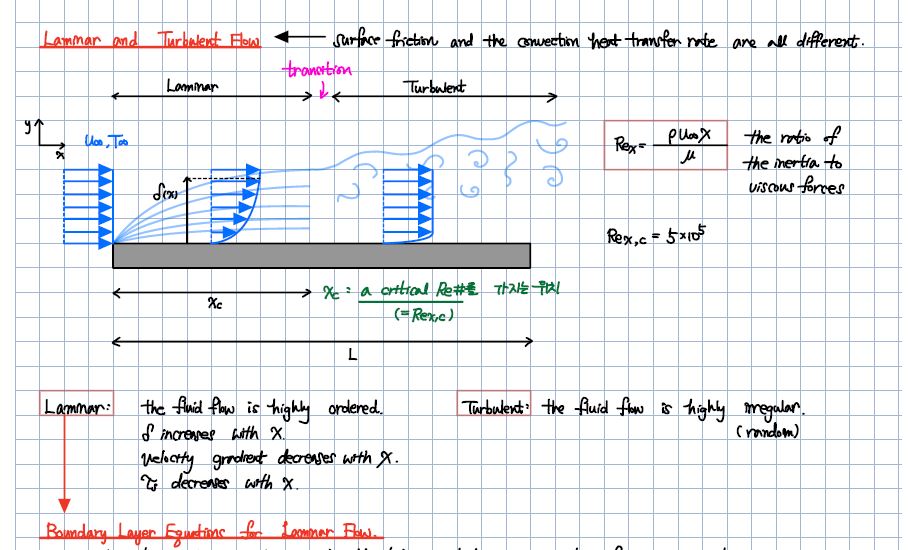 Laminar and Turbulent Flow ← surface friction and the convection heat transfer rate are all different.
transition
Laminar
Turbulent
y
x
u∞, T∞
δ(x)
Rex = ρu∞x / μ
the ratio of
the inertia to
viscous forces
Rex,c = 5×10⁵
xc
xc : a critical Re#를 가지는 위치
(=Rex,c)
L
Laminar: the fluid flow is highly ordered.
δ increases with x.
velocity gradient decreases with x.
τs decreases with x.
Turbulent: the fluid flow is highly irregular.
(random)
Boundary Layer Equations for Laminar Flow.